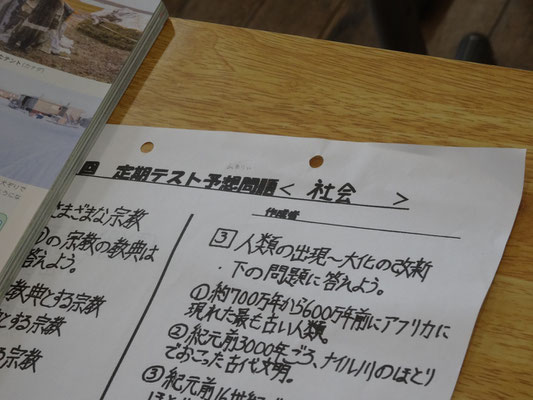 定期テスト予想問題< 社会 >
作成者
まざまな宗教
の宗教の教典は
答えよう。
教典とする宗教
とする宗教
る宗教
3 人類の出現〜大化の改新
・下の問題に答えよう。
①約700万年から600万年前にアフリカに
現れた最も古い人類。
②紀元前3000年ごろ、ナイル川のほとり
でおこった古代文明。
③紀元前16世紀ご